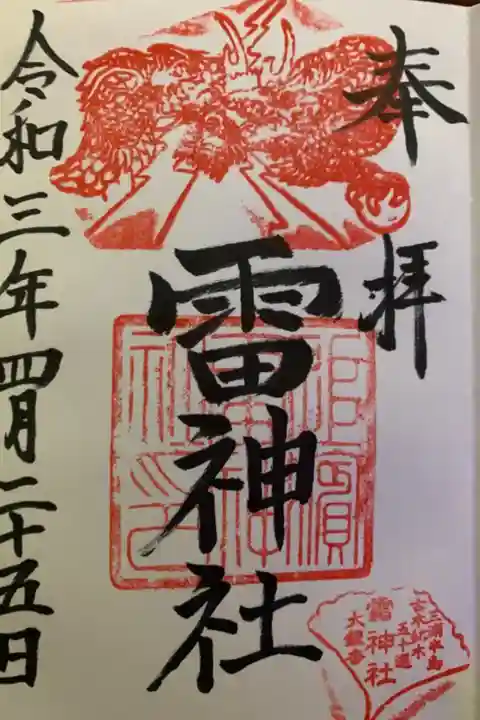 奉拝
雷神社
令和三年四月二十五日
三浦半島
古木名木
五十選
雷神社
大銀杏